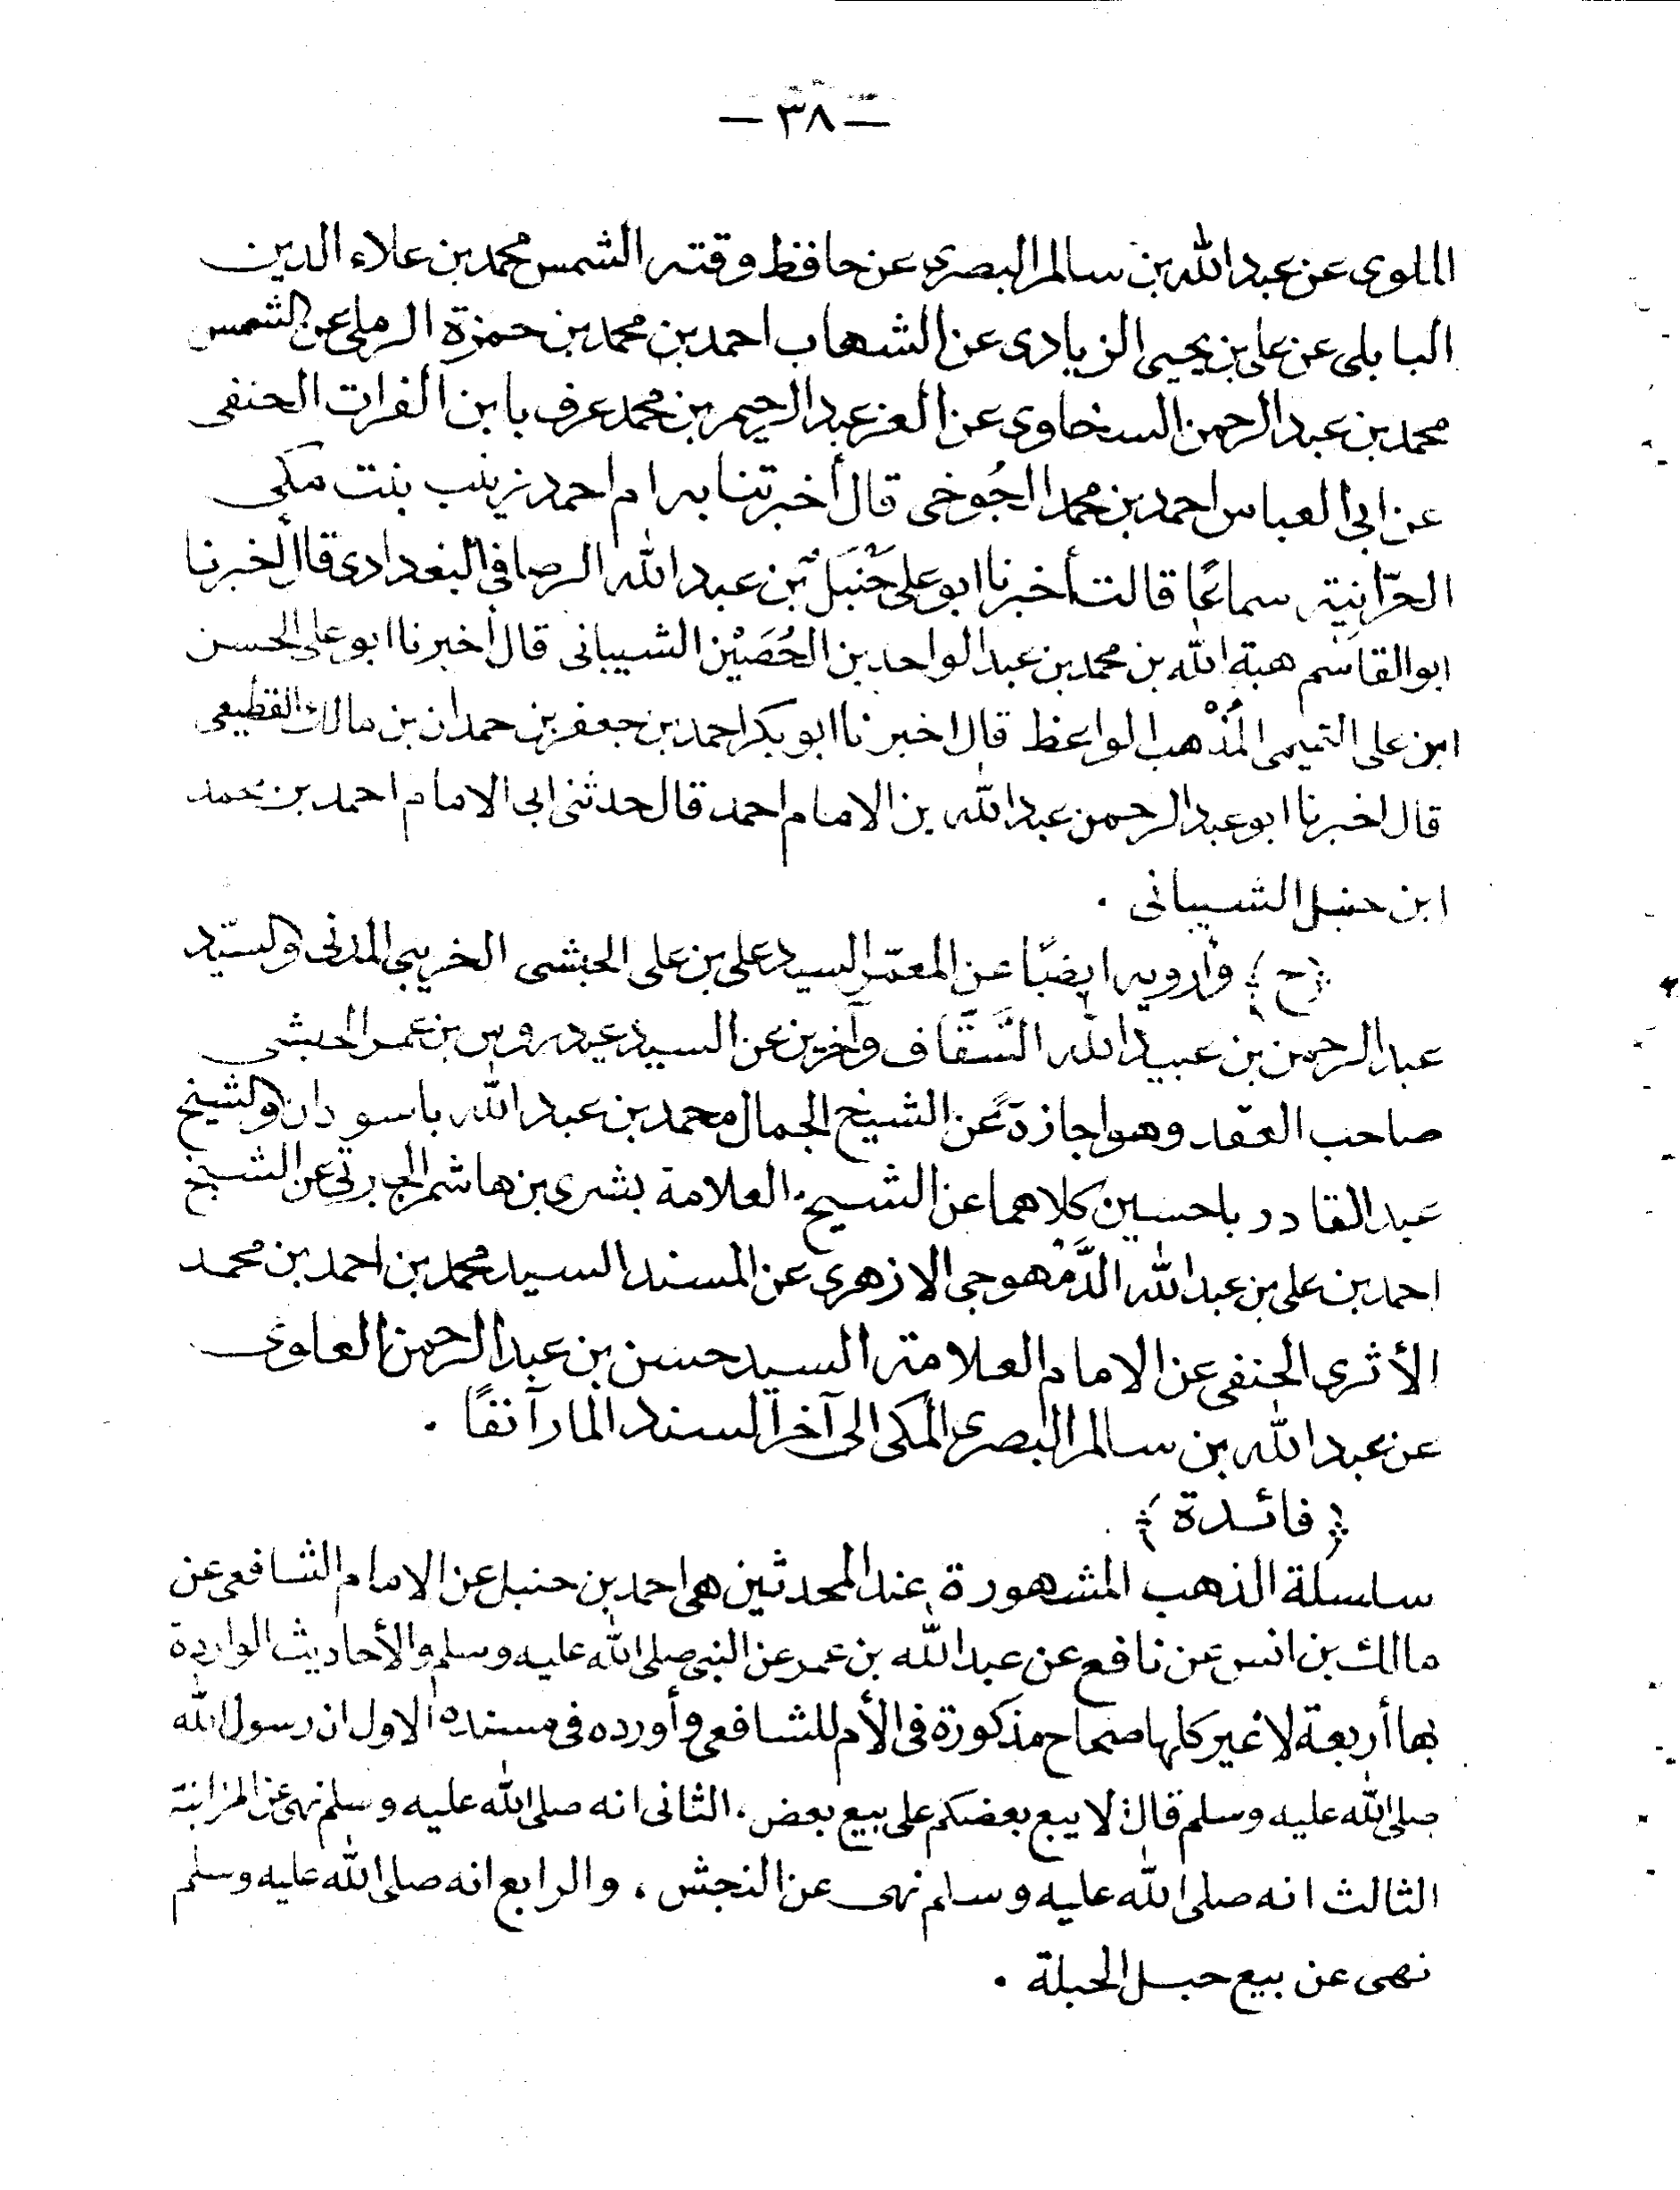 — ٣٨ —
الملوى عن عبد الله بن سالم البصرى عن حافظ وقته الشمس محمد بن علاء الدين
البابلى عن على بن يحيى الزيادى عن الشهاب احمد بن محمد بن حمزة الرملى عن الشمس
محمد بن عبد الرحمن السخاوى عن العز عبد الرحيم بن محمد عرف بابن الفرات الحنفى
عن ابى العباس احمد بن محمد الجُوخى قال أخبرتنا به ام احمد زينب بنت مكى
الحرّانية سماعًا قالت أخبرنا ابو على حَنْبَل بن عبد الله الرصافى البغدادى قال أخبرنا
ابو القاسم هبة الله بن محمد بن عبد الواحد بن الحُصَيْن الشيبانى قال أخبرنا ابو على الحسن
ابن على التميمى المُذْهب الواعظ قال اخبرنا ابو بكر احمد بن جعفر بن حمدان بن مالك القطيعى
قال اخبرنا ابو عبد الرحمن عبد الله بن الامام احمد قال حدثنى ابى الامام احمد بن محمد
ابن حنبل الشيبانى .
﴿ ح ﴾ وأرويه ايضًا عن المعمّر السيد على بن على الحبشى الخريبى المدنى والسيّد
عبد الرحمن بن عبيد الله السَّقَّاف وآخرين عن السيد عيدروس بن عمر الحبشى
صاحب العقد وهو اجازةً عن الشيخ الجمال محمد بن عبد الله باسودان والشيخ
عبد القادر باحسين كلاهما عن الشيخ العلامة بشرى بن هاشم الجبرتى عن الشيخ
احمد بن على بن عبد الله الدَّمْهوجى الازهرى عن المسند السيد محمد بن احمد بن محمد
الأثرى الحنفى عن الامام العلامة السيد حسن بن عبد الرحمن العلوى
عن عبد الله بن سالم البصرى المكى الى آخر السند المار آنفًا .
﴿ فائدة ﴾
سلسلة الذهب المشهورة عند المحدثين هى احمد بن حنبل عن الامام الشافعى عن
مالك بن انس عن نافع عن عبد الله بن عمر عن النبى صلى الله عليه وسلم والأحاديث الواردة
بها أربعة لا غير كلها صحاح مذكورة فى الأم للشافعى وأورده فى مسنده الاول ان رسول الله
صلى الله عليه وسلم قال لا يبع بعضكم على بيع بعض . الثانى انه صلى الله عليه وسلم نهى عن المزابنة
الثالث انه صلى الله عليه وسلم نهى عن النجش . والرابع انه صلى الله عليه وسلم
نهى عن بيع حبل الحبلة .